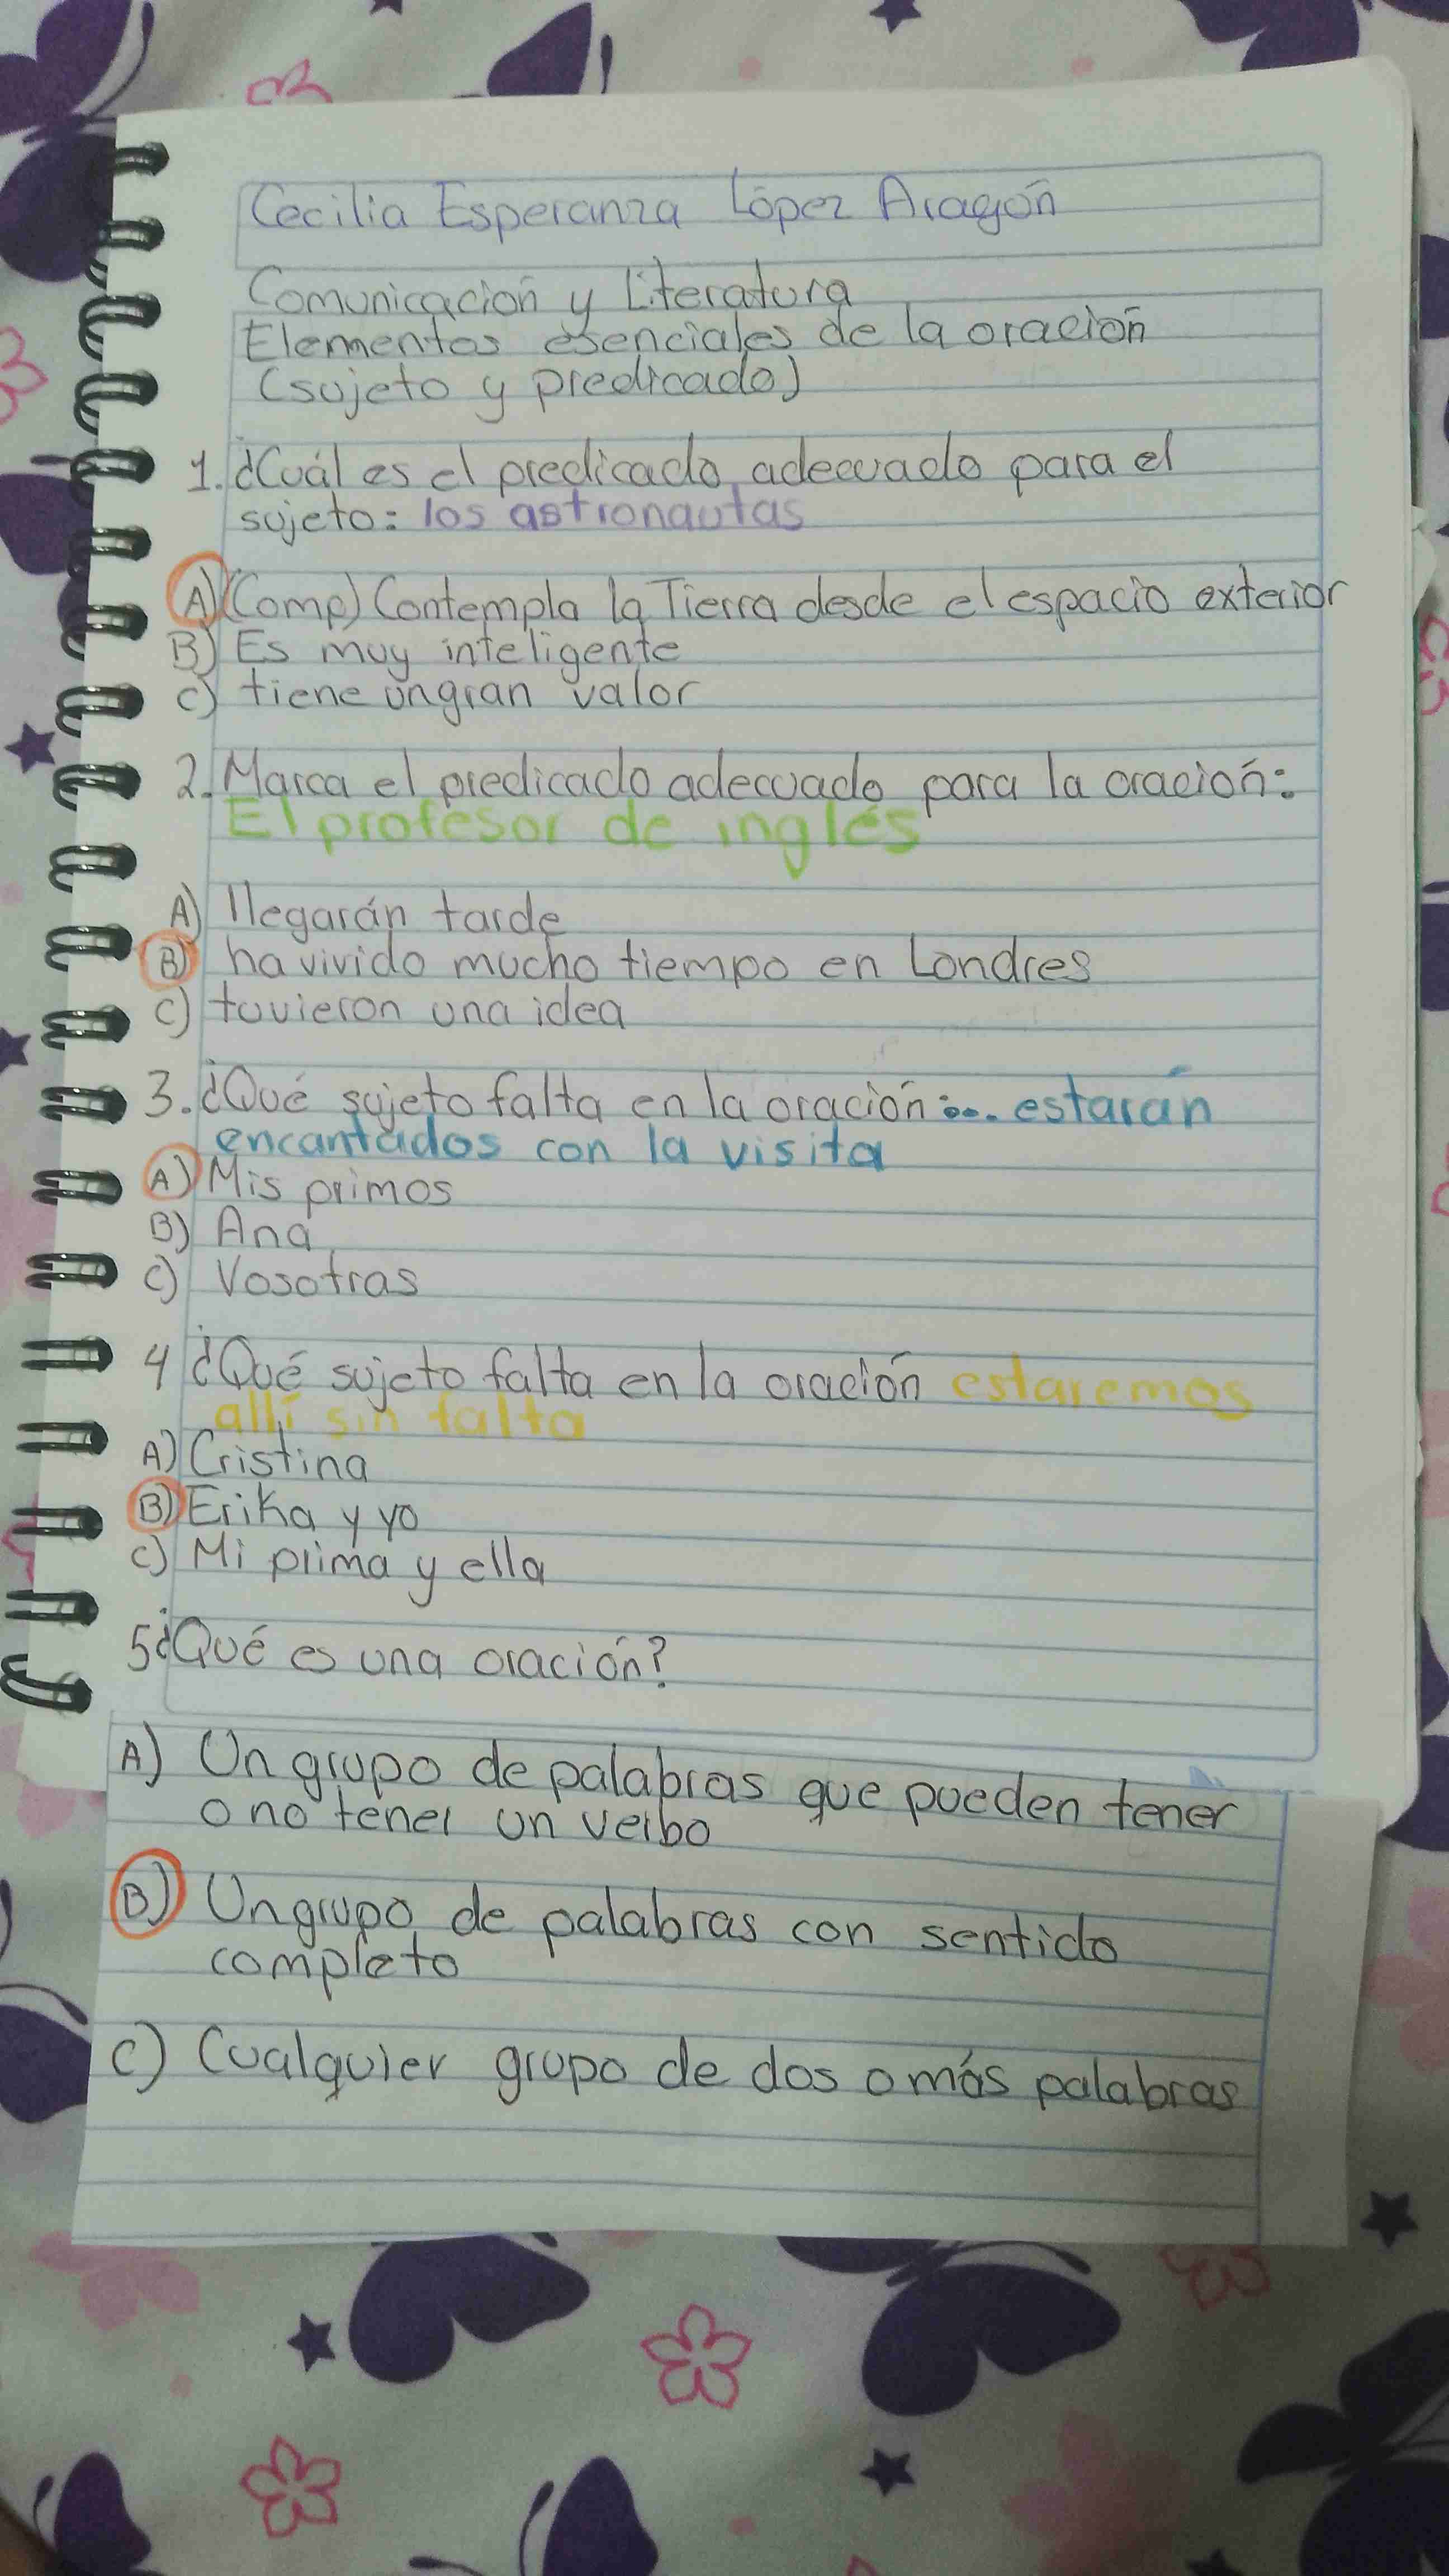 Cecilia Esperanza López Aragón
Comunicación y Literatura
Elementos esenciales de la oración
(sujeto y predicado)
1. ¿Cuál es el predicado adecuado para el
sujeto: los astronautas
A) (Comp) Contempla la Tierra desde el espacio exterior
B) Es muy inteligente
C) tiene un gran valor
2. Marca el predicado adecuado para la oración:
El profesor de inglés
A) llegarán tarde
B) ha vivido mucho tiempo en Londres
C) tuvieron una idea
3. ¿Qué sujeto falta en la oración:... estarán
encantados con la visita
A) Mis primos
B) Ana
C) Vosotras
4 ¿Qué sujeto falta en la oración estaremos
allí sin falta
A) Cristina
B) Erika y yo
C) Mi prima y ella
5 ¿Qué es una oración?
A) Un grupo de palabras que pueden tener
o no tener un verbo
B) Un grupo de palabras con sentido
completo
C) Cualquier grupo de dos o más palabras